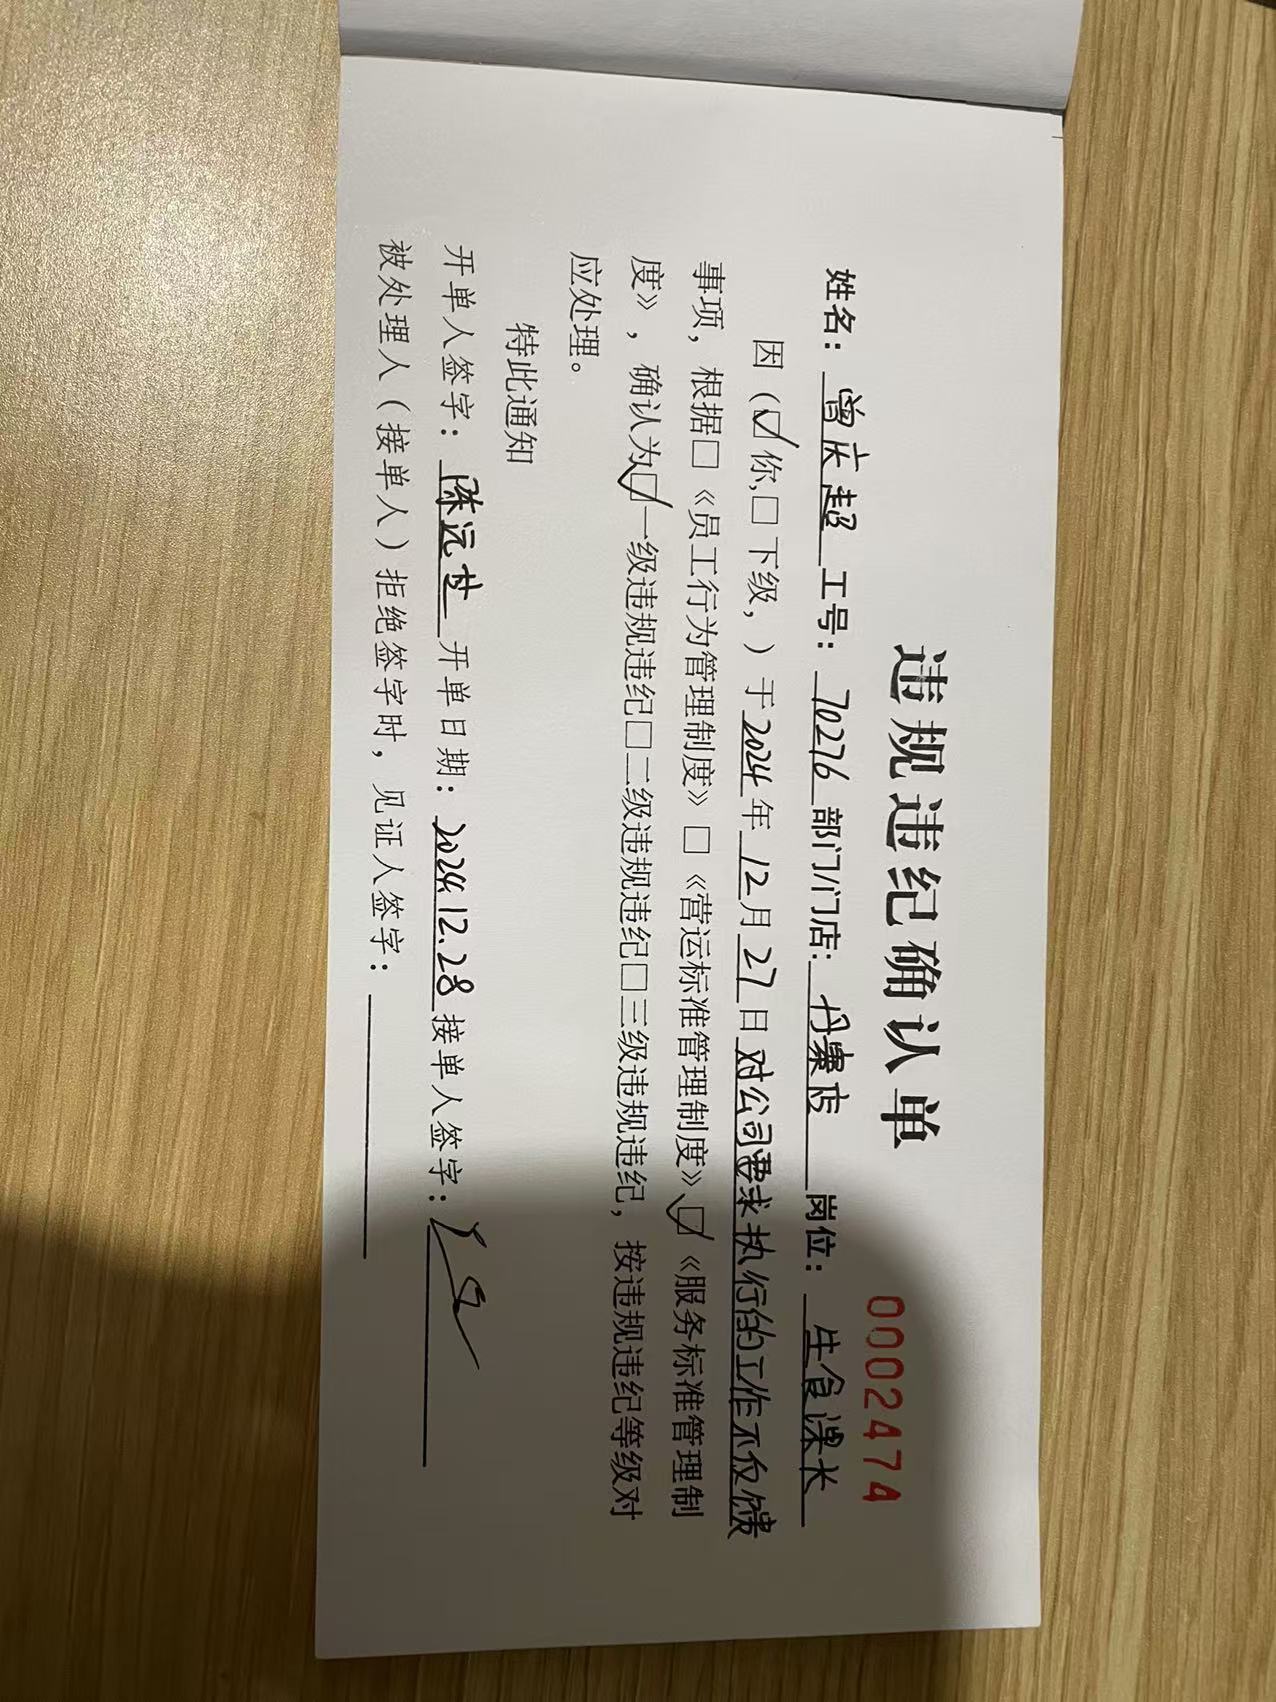 违规违纪确认单
0002474
姓名：曾庆超 工号：70276 部门/门店：丹寨店 岗位：生食课长
因（☑你,□下级，）于2024年12月27日对公司要求执行的工作不反馈
事项，根据□《员工行为管理制度》□《营运标准管理制度》☑《服务标准管理制
度》，确认为☑一级违规违纪□二级违规违纪□三级违规违纪，按违规违纪等级对
应处理。
特此通知
开单人签字：陈远 开单日期：2024.12.28 接单人签字：
被处理人（接单人）拒绝签字时，见证人签字：